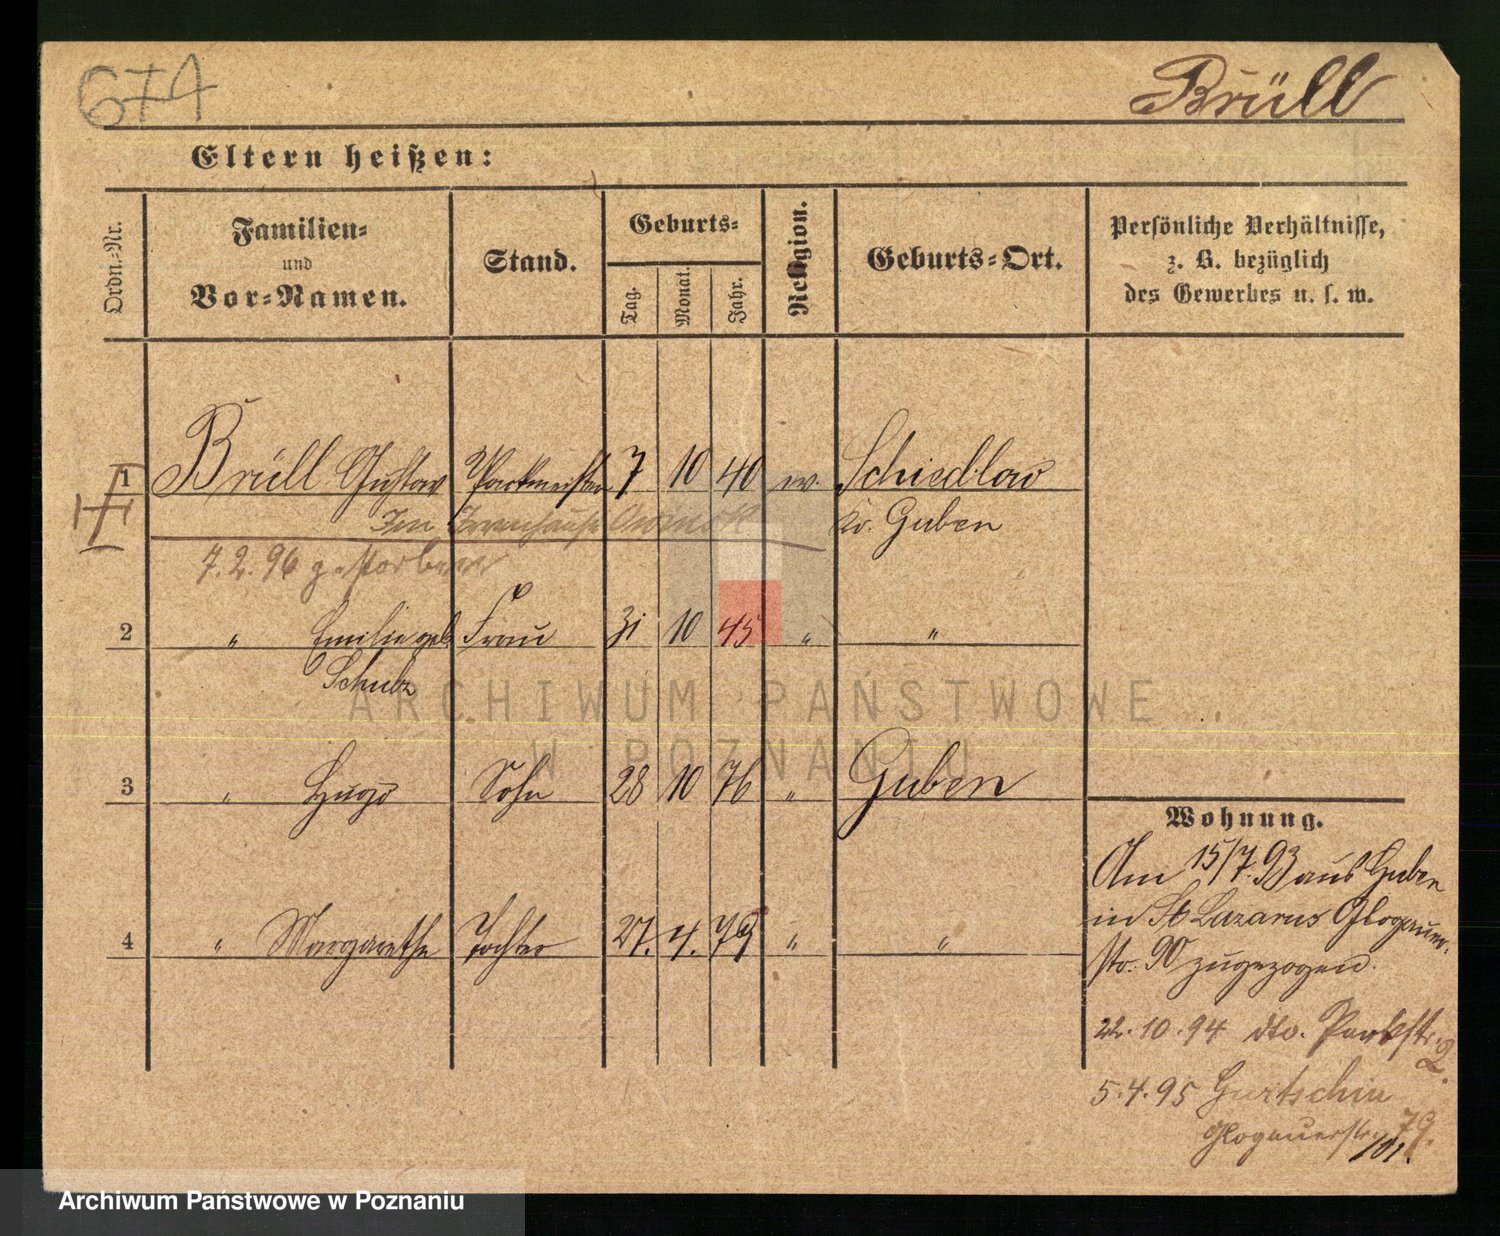 674
Brüll
Eltern heißen:
Ordn.-Nr.
Familien-
und
Vor-Namen.
Stand.
Geburts-
Tag.
Monat.
Jahr.
Religion.
Geburts-Ort.
Persönliche Verhältnisse,
z. B. bezüglich
des Gewerbes u. s. w.
1 Brüll Gustav Packmeister 7 10 40 ev. Schiedlow
Im Irrenhause Owinsk Kr. Guben
7.2.96 gestorben
2 " Emilie geb. Frau 31 10 45 " "
Schulz
3 " Hugo Sohn 28 10 76 " Guben
4 " Margarethe Tochter 27. 4. 79 " "
Wohnung.
Am 15/7.93 aus Guben
in St Lazarus Glogauer-
str. 90 zugezogen.
22.10.94 dto. Parkstr. 2.
5.4.95 Gurtschin
Glogauerstr. 79.
/101.
ARCHIWUM PAŃSTWOWE
W POZNANIU
Archiwum Państwowe w Poznaniu